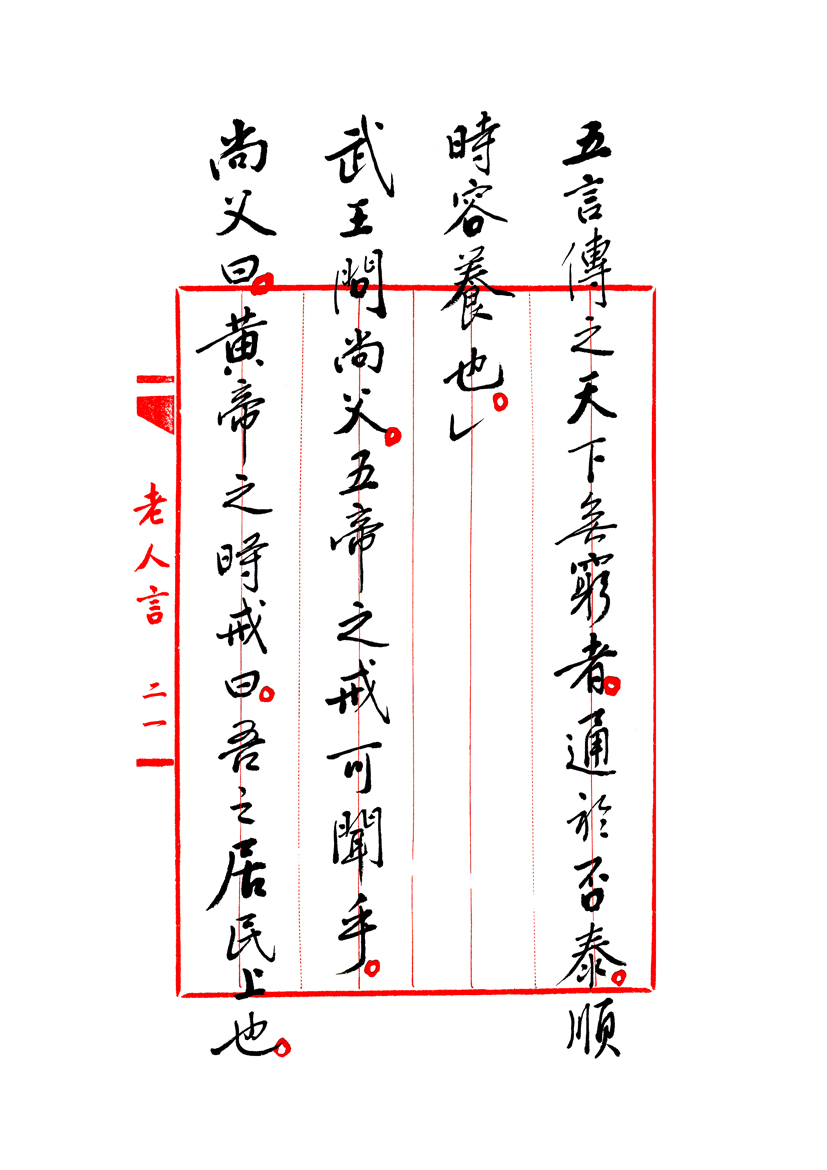 五言傳之天下無窮者。通於否泰。順
時容養也。
武王問尚父。五帝之戒可聞乎。
尚父曰。黃帝之時戒曰。吾之居民上也。
老人言 二一